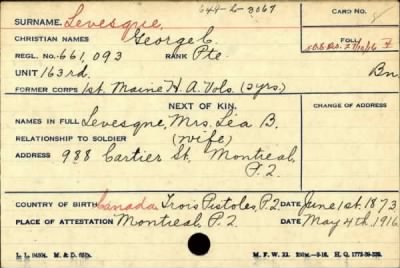 644-L-3067
SURNAME. Levesque, CARD NO.
CHRISTIAN NAMES George C. FOLL.
REGL. NO. 661,093 RANK Pte.
UNIT 163rd. Bn.
FORMER CORPS 1st. Maine H.A. Vols. (3yrs.)
NEXT OF KIN. CHANGE OF ADDRESS
NAMES IN FULL Levesque, Mrs. Lea B.
RELATIONSHIP TO SOLDIER (wife)
ADDRESS 988 Cartier St. Montreal,
P.Q.
COUNTRY OF BIRTH Canada Trois Pistoles, P.Q. DATE June 1st. 1873
PLACE OF ATTESTATION Montreal, P.Q. DATE May 4th. 1916
M. F. W. 22.